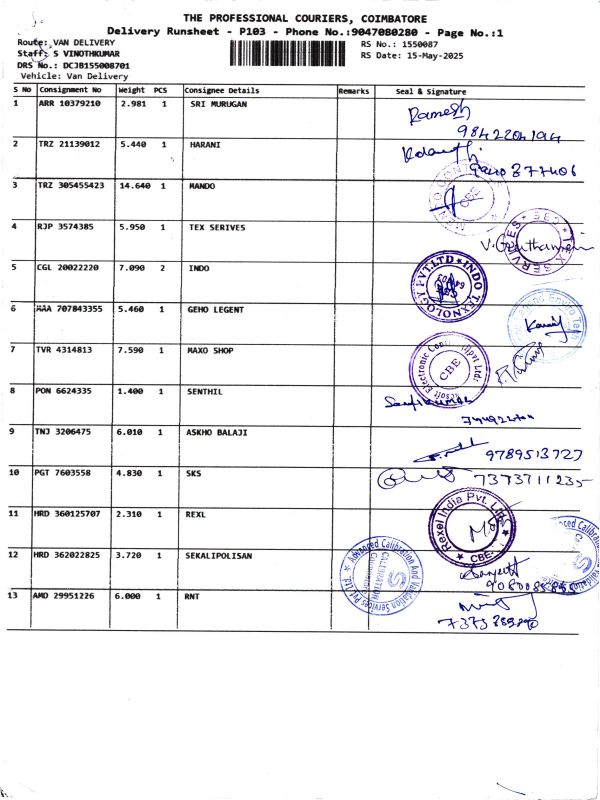 THE PROFESSIONAL COURIERS, COIMBATORE
Delivery Runsheet - P103 - Phone No.:9047080280 - Page No.:1
Route: VAN DELIVERY
RS No.: 1550087
Staff: S VINOTHKUMAR
RS Date: 15-May-2025
DRS No.: DCJB155008701
Vehicle: Van Delivery
S No Consignment No Weight PCS Consignee Details Remarks Seal & Signature
1 ARR 10379210 2.981 1 SRI MURUGAN Ramesh
9842204194
2 TRZ 21139012 5.440 1 HARANI
3 TRZ 305455423 14.640 1 MANDO CBE
4 RJP 3574385 5.950 1 TEX SERIVES TEX SERVICES
5 CGL 20022220 7.090 2 INDO INDO TEXNOLOGY PVT.LTD
6 MAA 707843355 5.460 1 GEHO LEGENT
7 TVR 4314813 7.590 1 MAXO SHOP CBE
8 PON 6624335 1.400 1 SENTHIL
9 TNJ 3206475 6.010 1 ASKHO BALAJI 9789513727
10 PGT 7603558 4.830 1 SKS 7373711235
11 HRD 360125707 2.310 1 REXL Rexel India Pvt. Ltd. CBE
12 HRD 362022825 3.720 1 SEKALIPOLISAN Advanced Calibration And Validation Services Pvt Ltd.
13 AMD 29951226 6.000 1 RNT